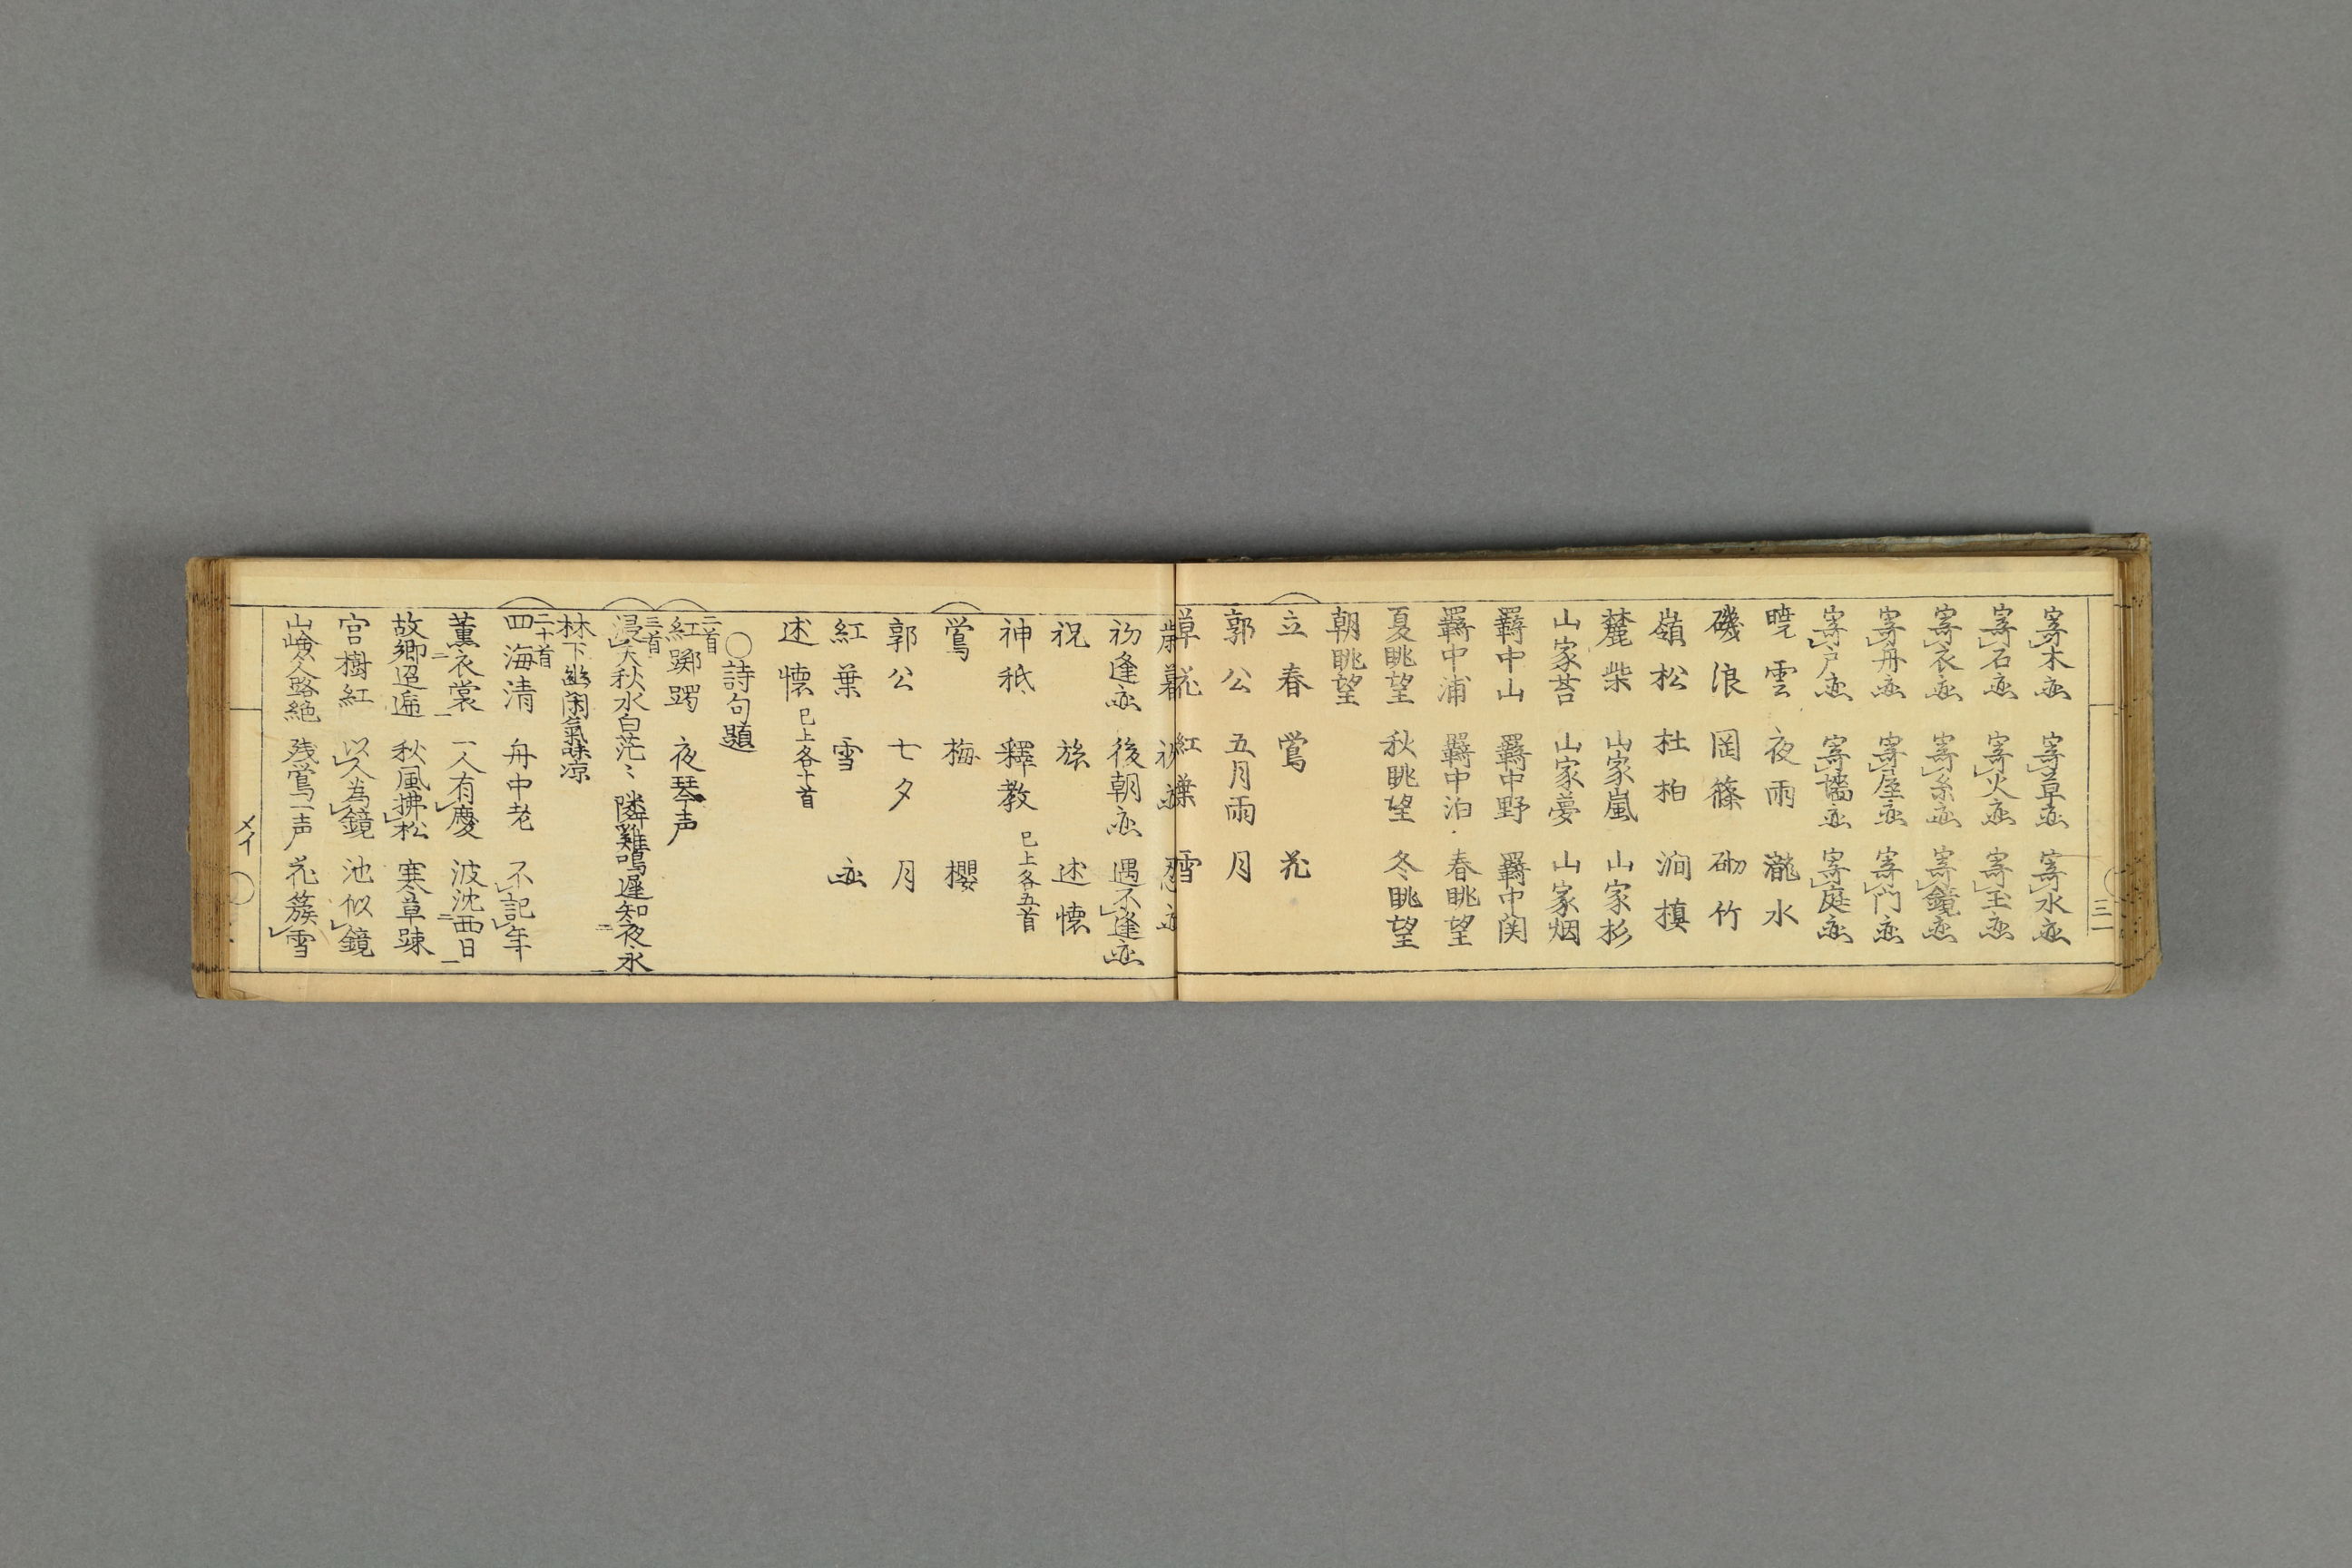 寄木恋 寄草恋 寄水恋
寄石恋 寄火恋 寄玉恋
寄衣恋 寄糸恋 寄鏡恋
寄舟恋 寄屋恋 寄門恋
寄戸恋 寄墻恋 寄庭恋
暁雲 夜雨 瀧水
磯浪 岡篠 砌竹
嶺松 杜柏 澗槙
麓柴 山家嵐 山家杉
山家苔 山家夢 山家烟
羇中山 羇中野 羇中関
羇中浦 羇中泊 春眺望
夏眺望 秋眺望 冬眺望
朝眺望
立春 鶯 花
郭公 五月雨 月
草花 紅葉 雪
歳暮
初逢恋 後朝恋 遇不逢恋
祝 旅 述懐
神祇 釋教 已上各五首
鶯 梅 櫻
郭公 七夕 月
紅葉 雪 恋
述懐 已上各十首
○詩句題
二首
紅躑躅 夜琴声
三首
浸天秋水白茫〻 隣雞鳴遅知夜永
林下幽閑氣味凉
二十首
四海清 舟中老 不記年
薫衣裳 一人有慶 波沈西日
故郷迢逓 秋風拂松 寒草踈
宮樹紅 以人為鏡 池似鏡
山嶮人路絶 残鶯一声 花簇雪
三
メイ